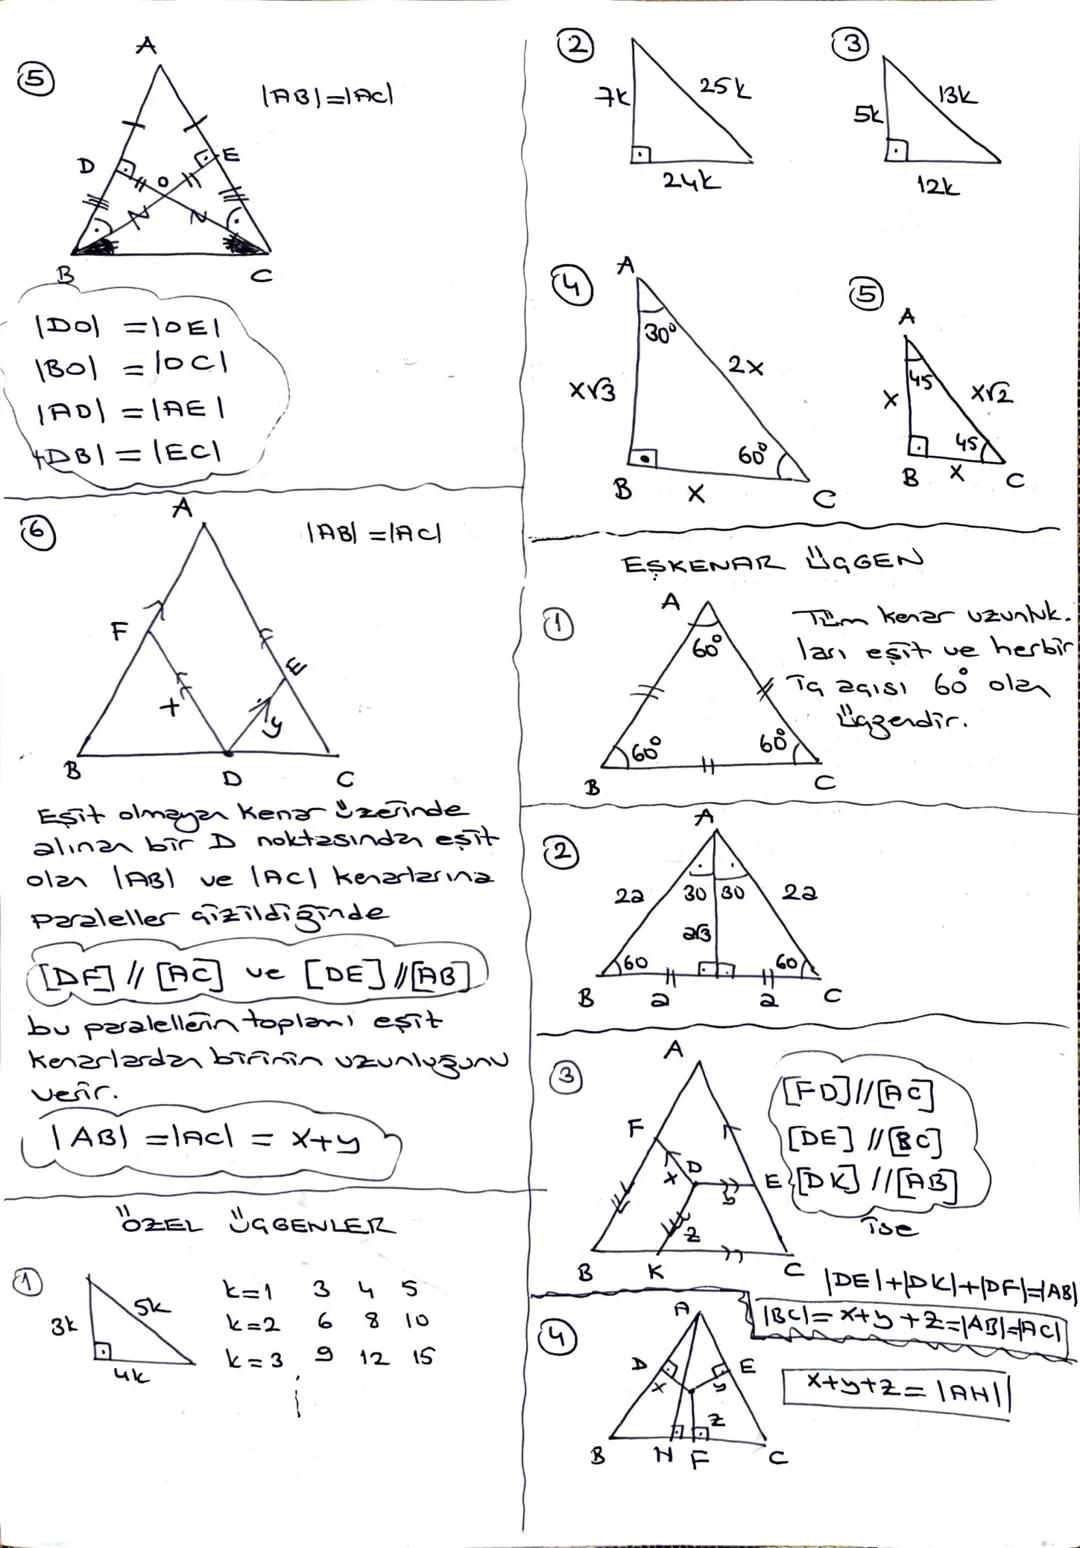 5
|AB|=|AC|
A
D
E
O
B
C
|DO| =|OE|
|BO| = |OC|
|AD| = |AE|
|DB| = |EC|
6
|AB| =|AC|
A
F
E
x
y
B
D
C
Eşit olmayan kenar üzerinde
alınan bir D noktasından eşit
olan |AB| ve |AC| kenarlarına
paraleller çizildiğinde
[DF] // [AC] ve [DE] // [AB]
bu paralellerin toplamı eşit
kenarlardan birinin uzunluğunu
verir.
|AB| =|AC| = x+y
ÖZEL ÜÇGENLER
1
3k
5k
4k
k=1 3 4 5
k=2 6 8 10
k=3 9 12 15
2
7k
25k
24k
3
5k
13k
12k
4
A
30°
x√3
2x
60°
B
x
C
5
A
45
x
x√2
45
B
x
C
EŞKENAR ÜÇGEN
1
A
60°
60°
60°
B
C
Tüm kenar uzunluk.
ları eşit ve herbir
iç açısı 60° olan
üçgendir.
2
A
2a
30
30
2a
a√3
60
60
B
a
a
C
3
A
F
D
x
E
y
z
B
K
C
[FD]//[AC]
[DE] //[BC]
[DK] //[AB]
ise
|DE|+|DK|+|DF|=|AB|
|BC|= x+y+z=|AB|=|AC|
4
A
D
E
x
y
z
B
H
F
C
x+y+z= |AH|